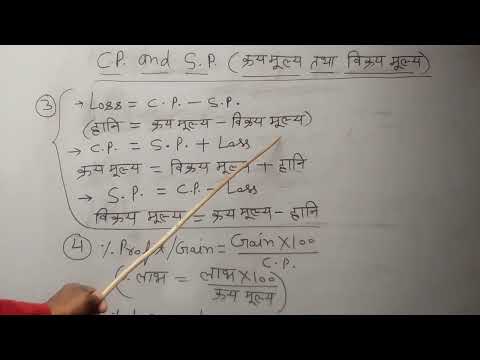 C.P. and S.P. (क्रय मूल्य तथा विक्रय मूल्य)
③ → Loss = C.P. - S.P.
(हानि = क्रय मूल्य - विक्रय मूल्य)
→ C.P. = S.P. + Loss
क्रय मूल्य = विक्रय मूल्य + हानि
→ S.P. = C.P. - Loss
विक्रय मूल्य = क्रय मूल्य - हानि
④ % Profit/Gain = Gain X 100 / C.P.
(% लाभ = लाभ X 100 / क्रय मूल्य)